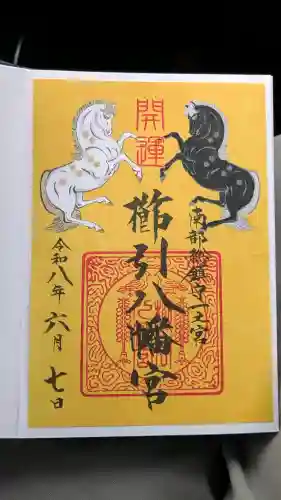 開運
南部総鎮守一之宮
櫛引八幡宮
令和八年
六月
七日